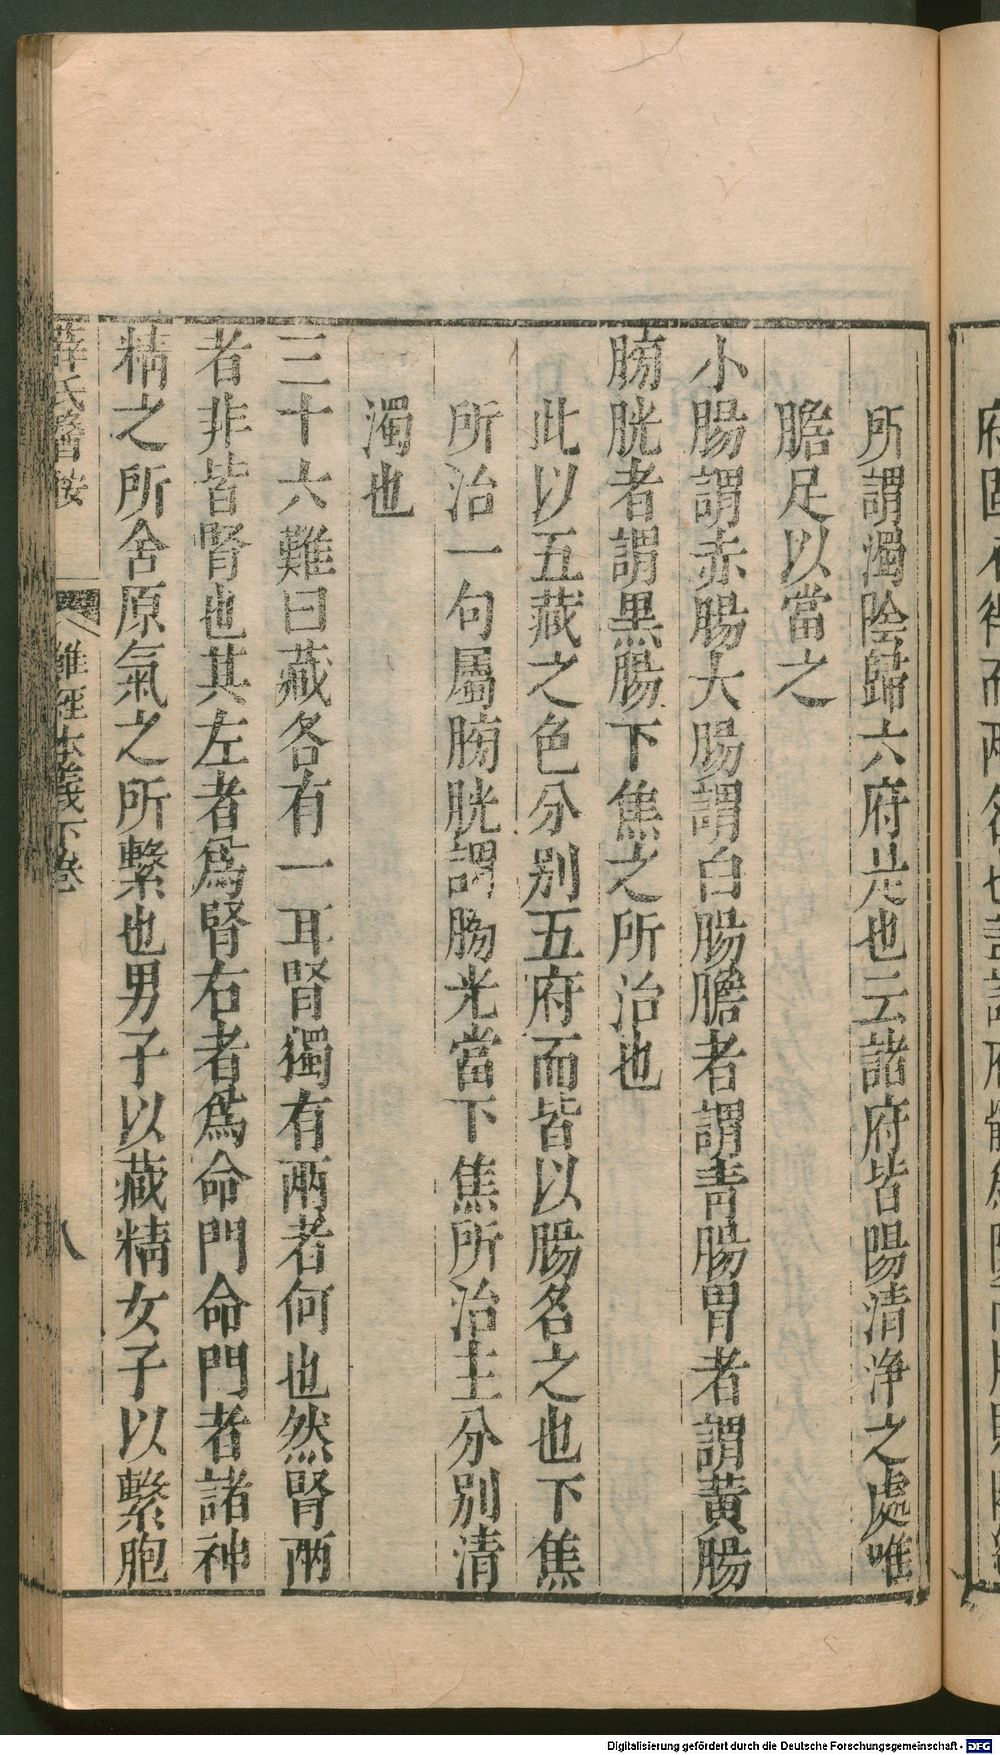 所謂濁陰歸六府是也云諸府皆陽清淨之處唯
膽足以當之
小腸謂赤腸大腸謂白腸膽者謂靑腸胃者謂黃腸
膀胱者謂黑腸下焦之所治也
此以五藏之色分別五府而皆以腸名之也下焦
所治一句屬膀胱謂膀光當下焦所治主分別清
濁也
三十六難曰藏各有一耳腎獨有兩者何也然腎兩
者非皆腎也其左者爲腎右者爲命門命門者諸神
精之所舍原氣之所繫也男子以藏精女子以繫胞
薛氏醫按 難經本義下卷 八
Digitalisierung gefördert durch die Deutsche Forschungsgemeinschaft - DFG